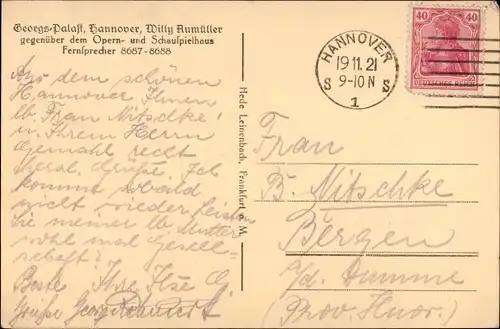 Georgs-Palast, Hannover, Willy Aumüller
gegenüber dem Opern- und Schauspielhaus
Fernsprecher 8687-8688
Aus dem schönen
Hannover Ihnen
lb. Frau Mitschke
u. Ihrem Herrn
Gemahl recht
herzl. Grüße. Ich
komme sobald
nicht wieder. Leisten
Sie meiner lb. Mutter
wohl mal Gesell-
schaft?
Beste Ihre Ilse G.
Grüße Georg
Hede Leinenbach, Frankfurt a. M.
HANNOVER
19 11. 21
9-10 N
S S
1
40 40
DEUTSCHES REICH
Frau
B. Mitschke
Bergen
a/d. Dumme
(Prov. Hnor.)